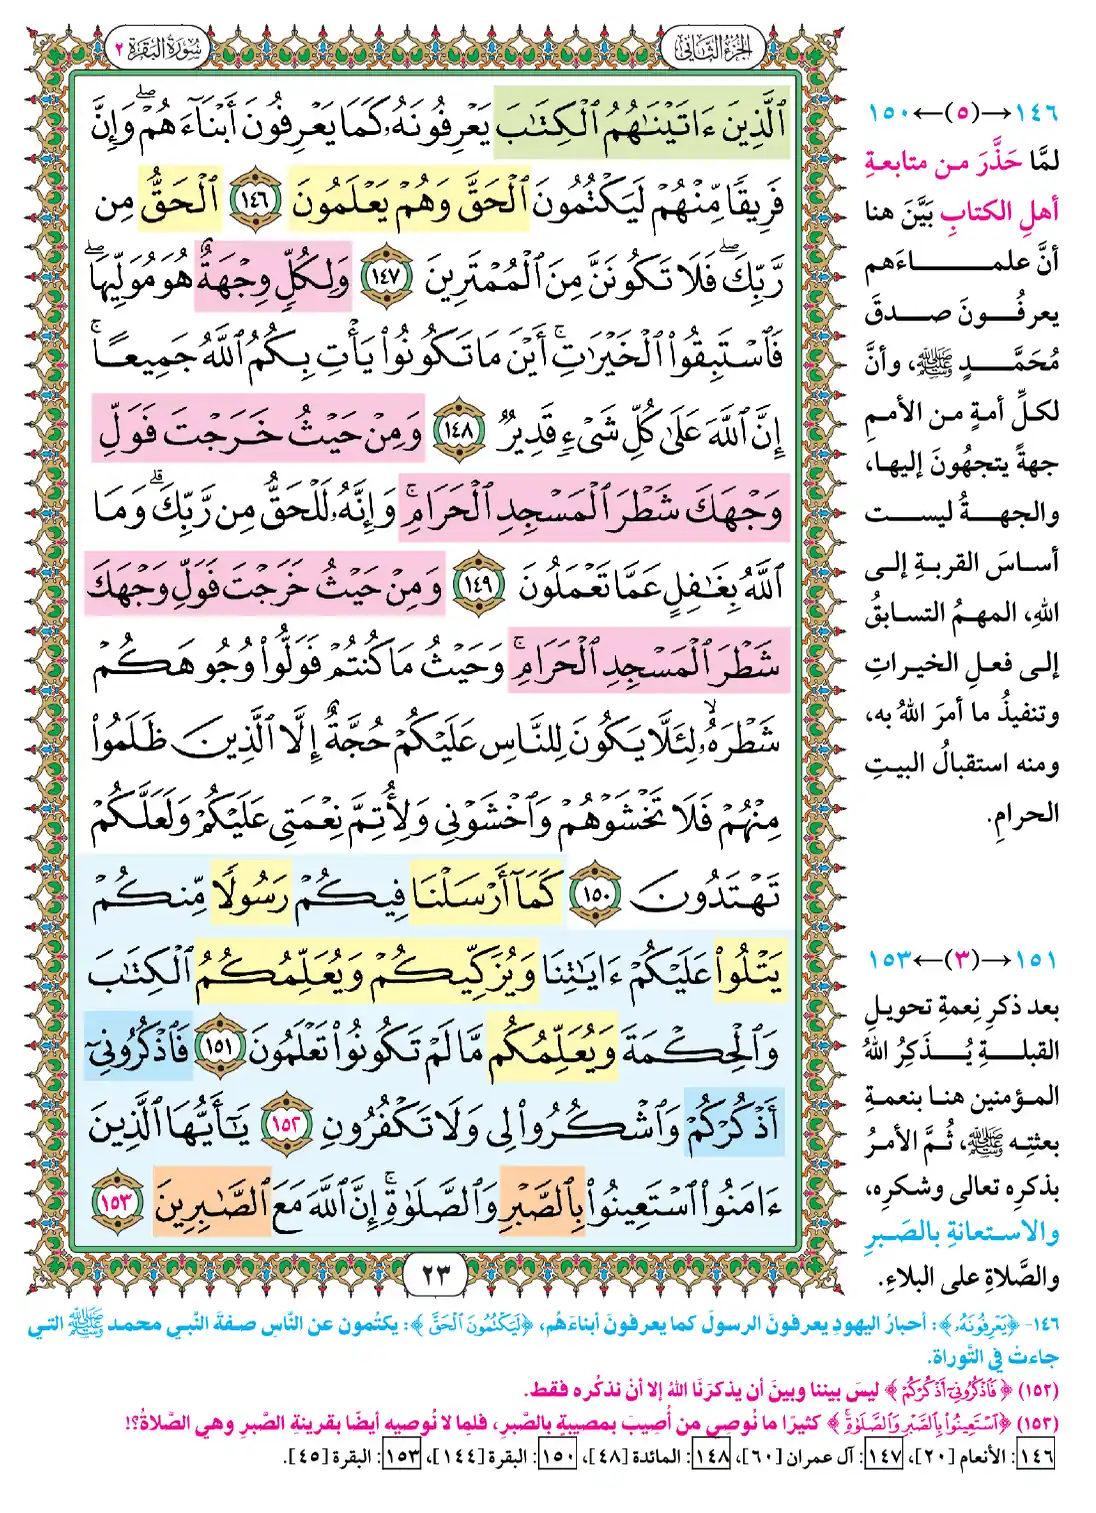 الجزء الثاني
سورة البقرة ٢
ٱلَّذِينَ ءَاتَيْنَٰهُمُ ٱلْكِتَٰبَ يَعْرِفُونَهُۥ كَمَا يَعْرِفُونَ أَبْنَآءَهُمْ ۖ وَإِنَّ
فَرِيقًا مِّنْهُمْ لَيَكْتُمُونَ ٱلْحَقَّ وَهُمْ يَعْلَمُونَ ١٤٦ ٱلْحَقُّ مِن
رَّبِّكَ ۖ فَلَا تَكُونَنَّ مِنَ ٱلْمُمْتَرِينَ ١٤٧ وَلِكُلٍّ وِجْهَةٌ هُوَ مُوَلِّيهَا ۖ
فَٱسْتَبِقُوا۟ ٱلْخَيْرَٰتِ ۚ أَيْنَ مَا تَكُونُوا۟ يَأْتِ بِكُمُ ٱللَّهُ جَمِيعًا ۚ
إِنَّ ٱللَّهَ عَلَىٰ كُلِّ شَىْءٍ قَدِيرٌ ١٤٨ وَمِنْ حَيْثُ خَرَجْتَ فَوَلِّ
وَجْهَكَ شَطْرَ ٱلْمَسْجِدِ ٱلْحَرَامِ ۚ وَإِنَّهُۥ لَلْحَقُّ مِن رَّبِّكَ ۗ وَمَا
ٱللَّهُ بِغَٰفِلٍ عَمَّا تَعْمَلُونَ ١٤٩ وَمِنْ حَيْثُ خَرَجْتَ فَوَلِّ وَجْهَكَ
شَطْرَ ٱلْمَسْجِدِ ٱلْحَرَامِ ۚ وَحَيْثُ مَا كُنتُمْ فَوَلُّوا۟ وُجُوهَكُمْ
شَطْرَهُۥ لِئَلَّا يَكُونَ لِلنَّاسِ عَلَيْكُمْ حُجَّةٌ إِلَّا ٱلَّذِينَ ظَلَمُوا۟
مِنْهُمْ فَلَا تَخْشَوْهُمْ وَٱخْشَوْنِى وَلِأُتِمَّ نِعْمَتِى عَلَيْكُمْ وَلَعَلَّكُمْ
تَهْتَدُونَ ١٥٠ كَمَآ أَرْسَلْنَا فِيكُمْ رَسُولًا مِّنكُمْ
يَتْلُوا۟ عَلَيْكُمْ ءَايَٰتِنَا وَيُزَكِّيكُمْ وَيُعَلِّمُكُمُ ٱلْكِتَٰبَ
وَٱلْحِكْمَةَ وَيُعَلِّمُكُم مَّا لَمْ تَكُونُوا۟ تَعْلَمُونَ ١٥١ فَٱذْكُرُونِىٓ
أَذْكُرْكُمْ وَٱشْكُرُوا۟ لِى وَلَا تَكْفُرُونِ ١٥٢ يَٰٓأَيُّهَا ٱلَّذِينَ
ءَامَنُوا۟ ٱسْتَعِينُوا۟ بِٱلصَّبْرِ وَٱلصَّلَوٰةِ ۚ إِنَّ ٱللَّهَ مَعَ ٱلصَّٰبِرِينَ ١٥٣
٢٣
١٤٦→(٥)←١٥٠
لمَّا حَذَّرَ من متابعةِ
أهلِ الكتابِ بَيَّنَ هنا
أنَّ علماءَهم
يعرفُونَ صدقَ
مُحَمَّدٍ ﷺ، وأنَّ
لكلِّ أمةٍ من الأممِ
جهةً يتجهُونَ إليها،
والجهةُ ليست
أساسَ القربةِ إلى
اللهِ، المهمُ التسابقُ
إلى فعلِ الخيراتِ
وتنفيذُ ما أمرَ اللهُ به،
ومنه استقبالُ البيتِ
الحرامِ.
١٥١→(٣)←١٥٣
بعد ذكرِ نِعمةِ تحويلِ
القبلةِ يُذَكِرُ اللهُ
المؤمنين هنا بنعمةِ
بعثتِه ﷺ، ثُمَّ الأمرُ
بذكرِه تعالى وشكرِه،
والاستعانةِ بالصَبرِ
والصَّلاةِ على البلاءِ.
١٤٦- ﴿يَعْرِفُونَهُۥ﴾: أحبارُ اليهودِ يعرفونَ الرسولَ كما يعرفونَ أبناءَهُم، ﴿لَيَكْتُمُونَ ٱلْحَقَّ﴾: يكتُمون عن النَّاسِ صفةَ النَّبي محمد ﷺ التي
جاءتْ في التَّوراة.
(١٥٢) ﴿فَٱذْكُرُونِىٓ أَذْكُرْكُمْ﴾ ليسَ بيننا وبينَ أن يذكرَنَا اللهُ إلا أنْ نذكُره فقط.
(١٥٣) ﴿ٱسْتَعِينُوا۟ بِٱلصَّبْرِ وَٱلصَّلَوٰةِ ۚ﴾ كثيرًا ما نُوصِي من أُصِيبَ بمصيبةٍ بالصَّبرِ، فلِما لا نُوصِيه أيضًا بقرينةِ الصَّبرِ وهي الصَّلاةُ؟!
١٤٦: الأنعام [٢٠]، ١٤٧: آل عمران [٦٠]، ١٤٨: المائدة [٤٨]، ١٥٠: البقرة [١٤٤]، ١٥٣: البقرة [٤٥].